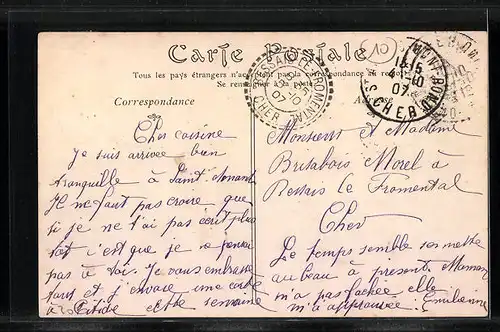 Carte Postale
Tous les pays étrangers n'acceptent pas la correspondance au recto
Se renseigner à la poste
Correspondance
Adresse
BESSAIS-LE-FROMENTAL
CHER
ST AMAND-MONT-ROND
CHER
10
07
Cher cousine
Je suis arrivée bien
tranquille à Saint-Amant
Il ne faut pas croire que
si je ne t'ai pas écrit plus
tôt c'est que je ne pensai
pas à toi. Je vous embrasse
tous et j'envoie une carte
à cette semaine
Monsieur et Madame
Brisabois Morel à
Bessais le Fromental
Cher
Le temps semble se mettre
au beau à present. Maman
m'a pas fachée elle
m'a approuvée. Emilienne